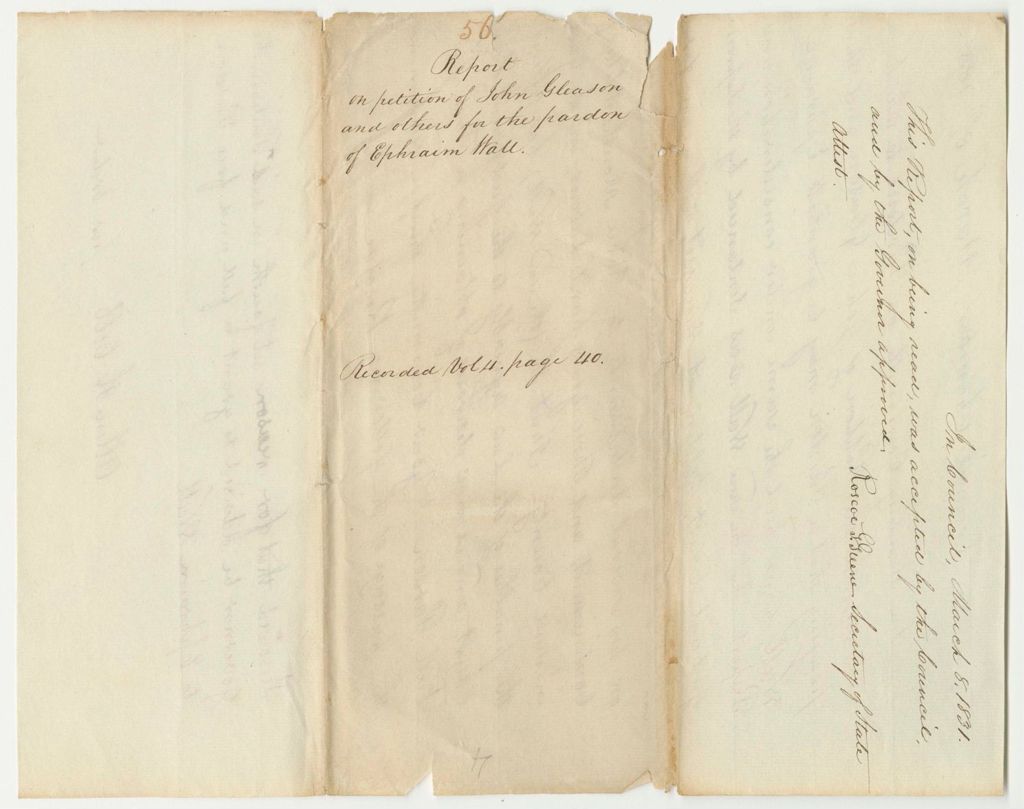 56.
Report
on petition of John Gleason
and others for the pardon
of Ephraim Hall.
Recorded Vol 4. page 40.
4
In Council, March 8, 1831.
This Report, on being read, was accepted by the Council,
and by the Governor approved.
Attest.
Roscoe G. Greene Secretary of State